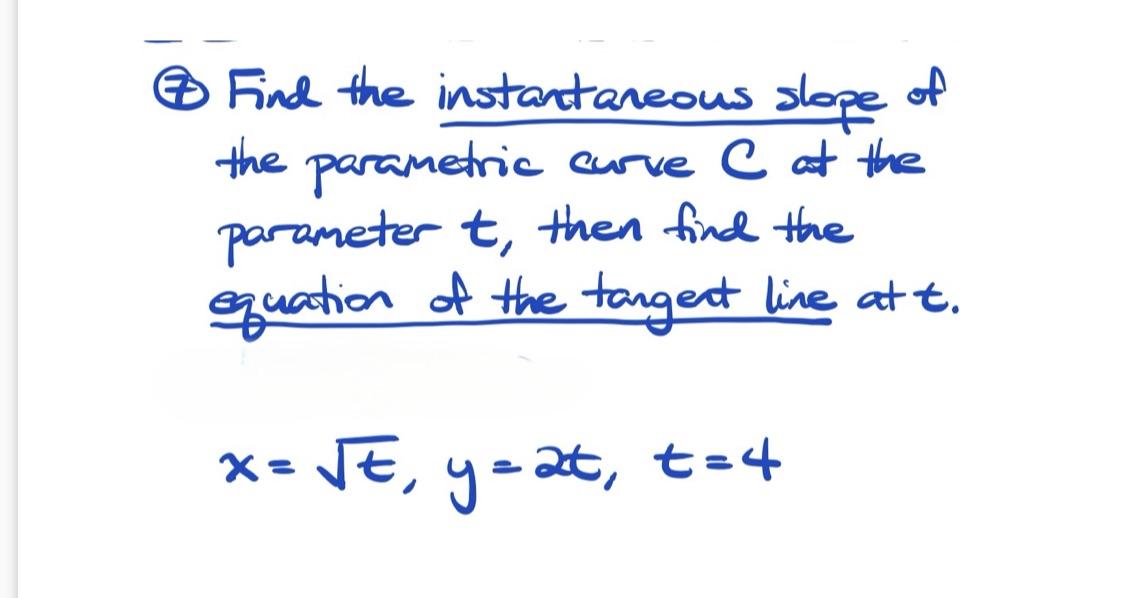 ⑦ Find the instantaneous slope of
the parametric curve C at the
parameter t, then find the
equation of the tangent line at t.
x = √t, y = 2t, t = 4